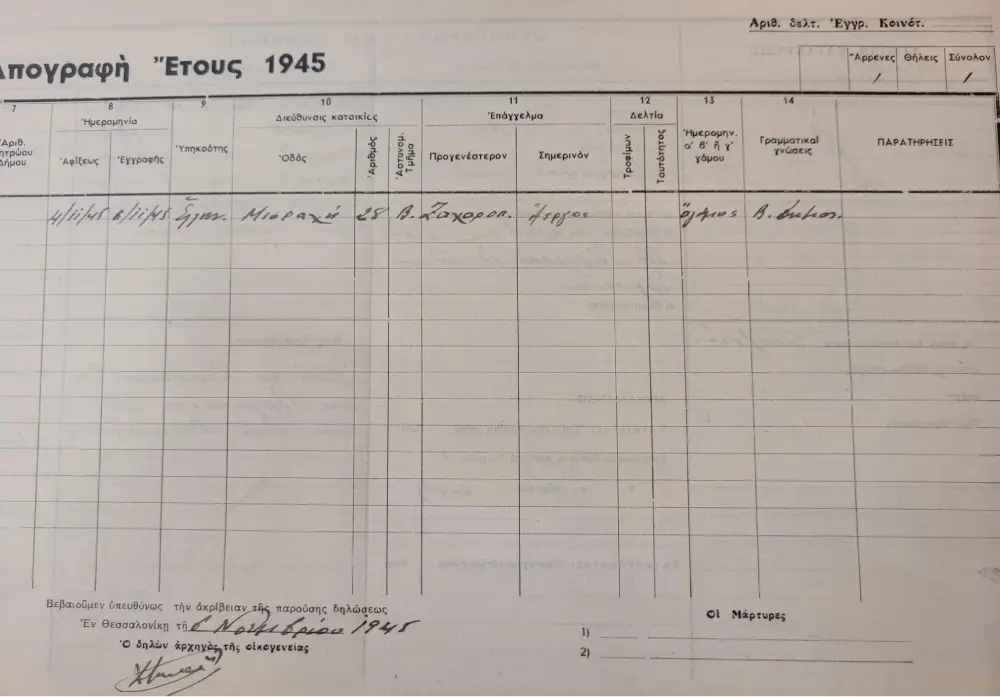 Ἀριθ. δελτ. Ἐγγρ. Κοινότ.
Απογραφὴ Ἔτους 1945
Ἄρρενες Θήλεις Σύνολον
1 1
7 8 9 10 11 12 13 14
Ἡμερομηνία Διεύθυνσις κατοικίες Ἐπάγγελμα Δελτία
Ἀριθ. μητρώου Δήμου Ἀφίξεως Ἐγγραφῆς Ὑπηκοότης Ὁδός Ἀριθμός Ἀστυνομ. Τμῆμα Προγενέστερον Σημερινόν Τροφίμων Ταυτότητος Ἡμερομην. α' β' ἢ γ' γάμου Γραμματικαί γνώσεις ΠΑΡΑΤΗΡΗΣΕΙΣ
4/11/45 6/11/45 Ἕλλην. Μισραχή 28 Β. Ζαχαροπ. Ἄεργος Ἄγαμος Β. Δημοτ.
Βεβαιοῦμεν ὑπευθύνως τὴν ἀκρίβειαν τῆς παρούσης δηλώσεως
Ἐν Θεσσαλονίκῃ τῇ 6 Νοεμβρίου 1945
Ὁ δηλῶν ἀρχηγὸς τῆς οἰκογενείας
Οἱ Μάρτυρες
1)
2)